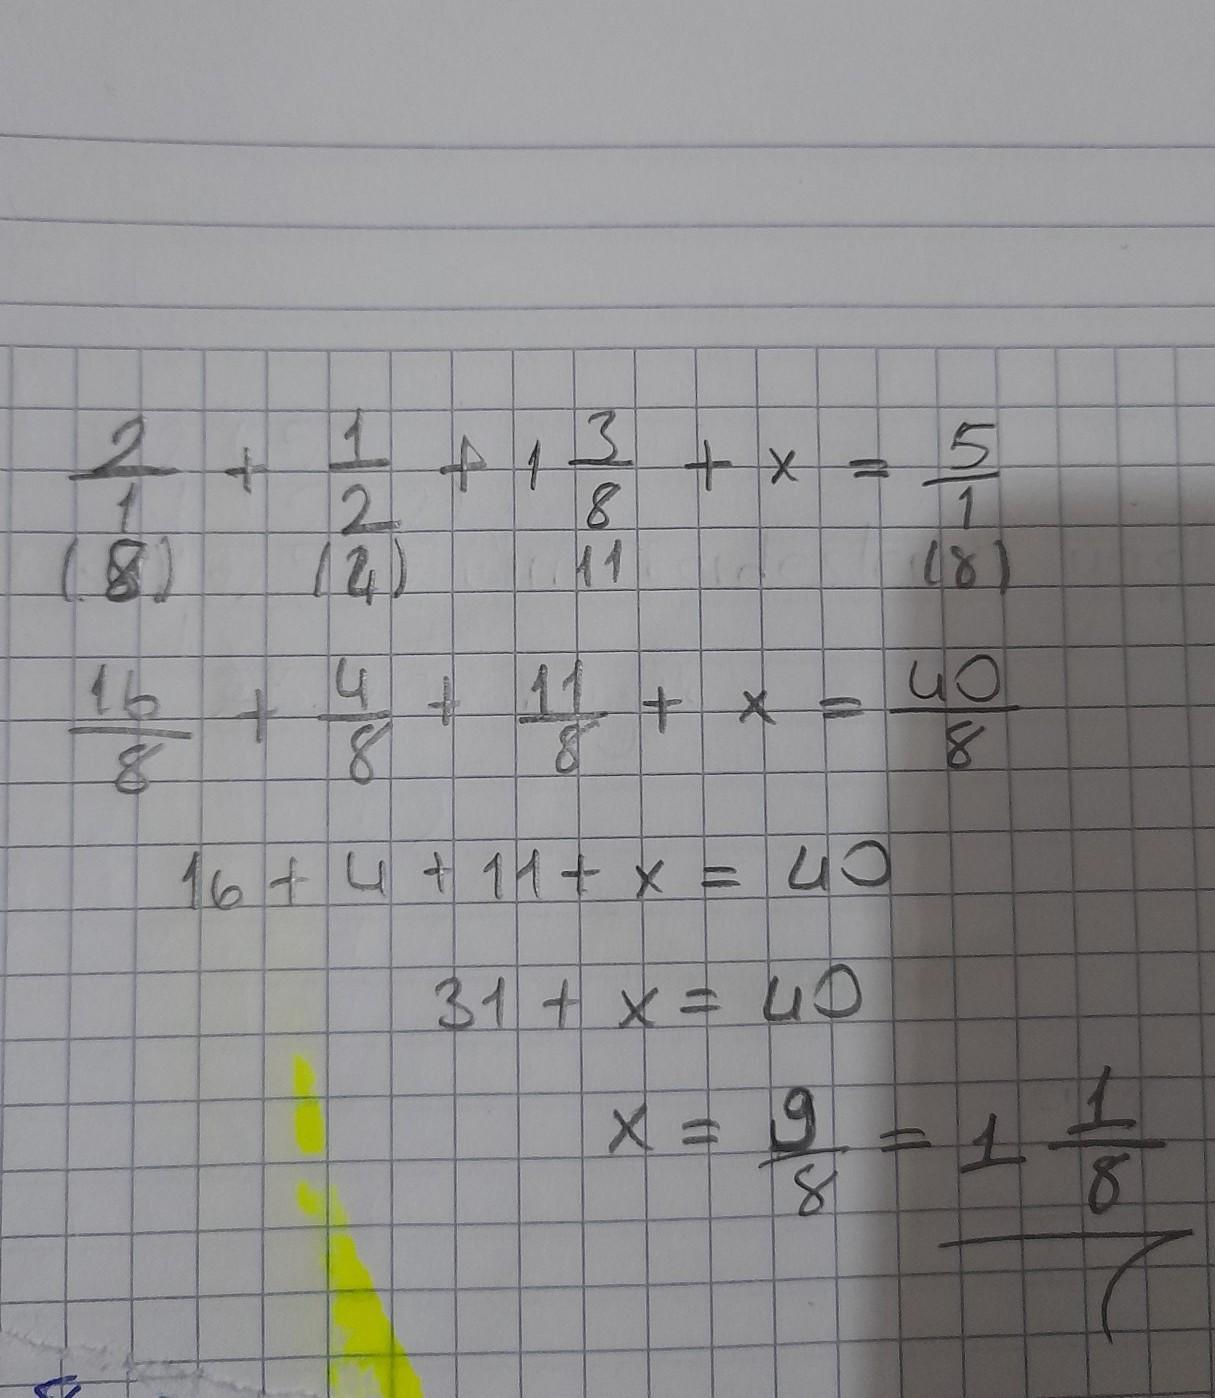 2/1 + 1/2 + 1 3/8 + x = 5/1
(8) (4) 11 (8)
16/8 + 4/8 + 11/8 + x = 40/8
16 + 4 + 11 + x = 40
31 + x = 40
x = 9/8 = 1 1/8